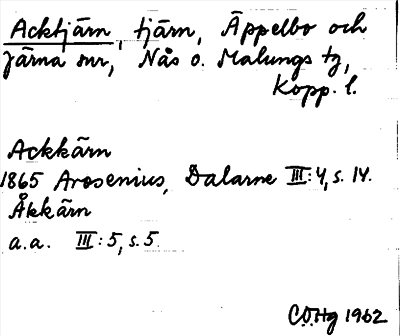 Acktjärn, tjärn, Äppelbo och
Järna snr, Nås o. Malungs tg,
Kopp. l.
Ackkärn
1865 Arosenius, Dalarne III:4, s. 14.
Åkkärn
a.a. III:5, s. 5.
C.O.Hg 1962